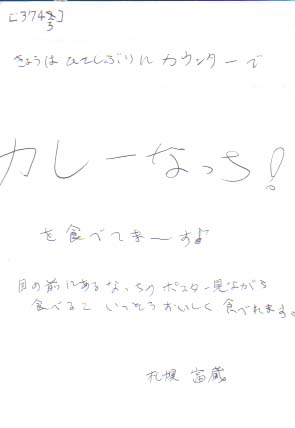 [3743]
きょうはひさしぶりにカウンターで
カレーなっち!
を食べてま〜す♪
目の前にあるなっちのポスター見ながら
食べると いっそうおいしく 食べれます。
札幌 富蔵